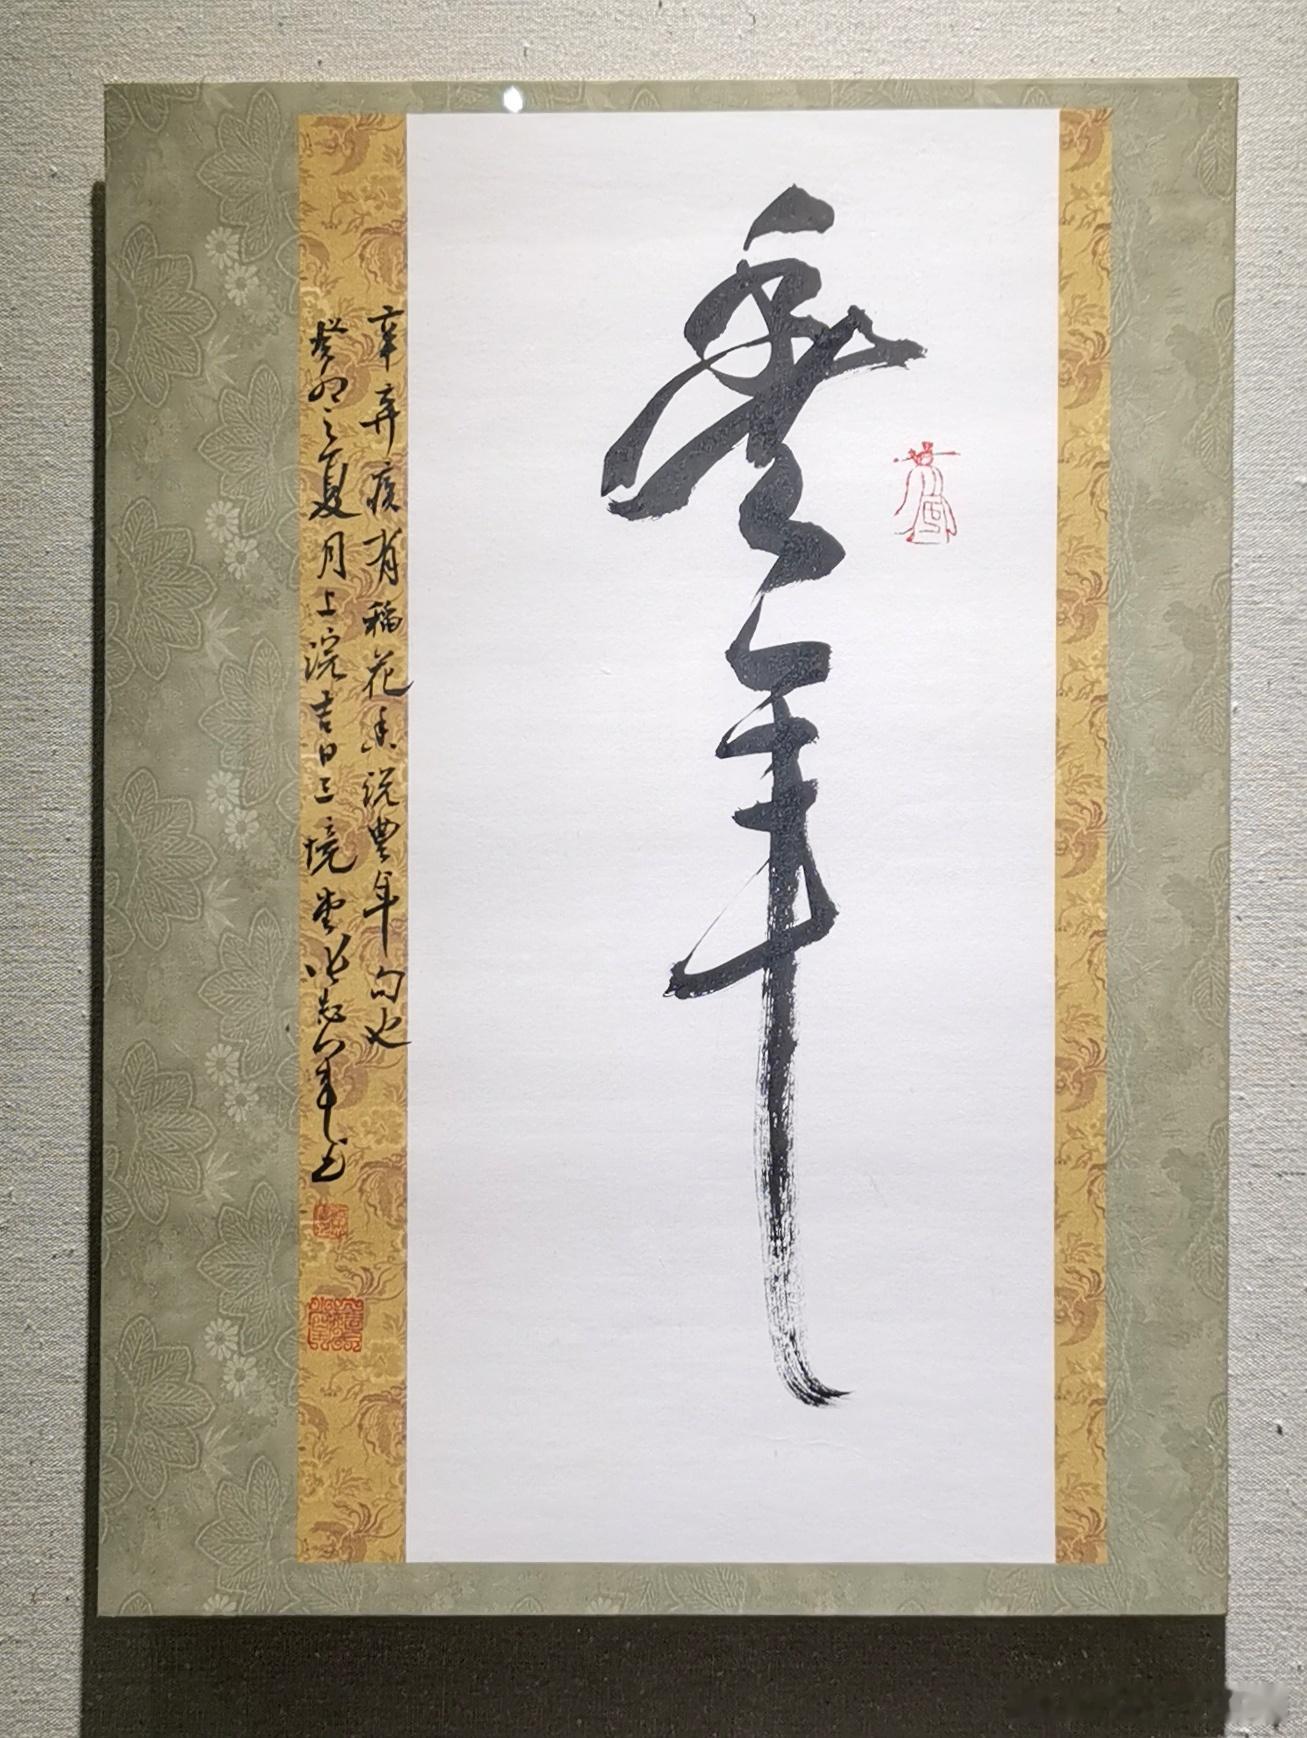 豐年
辛弃疾有稻花香説豐年句也
癸卯之夏月上浣吉日三境堂